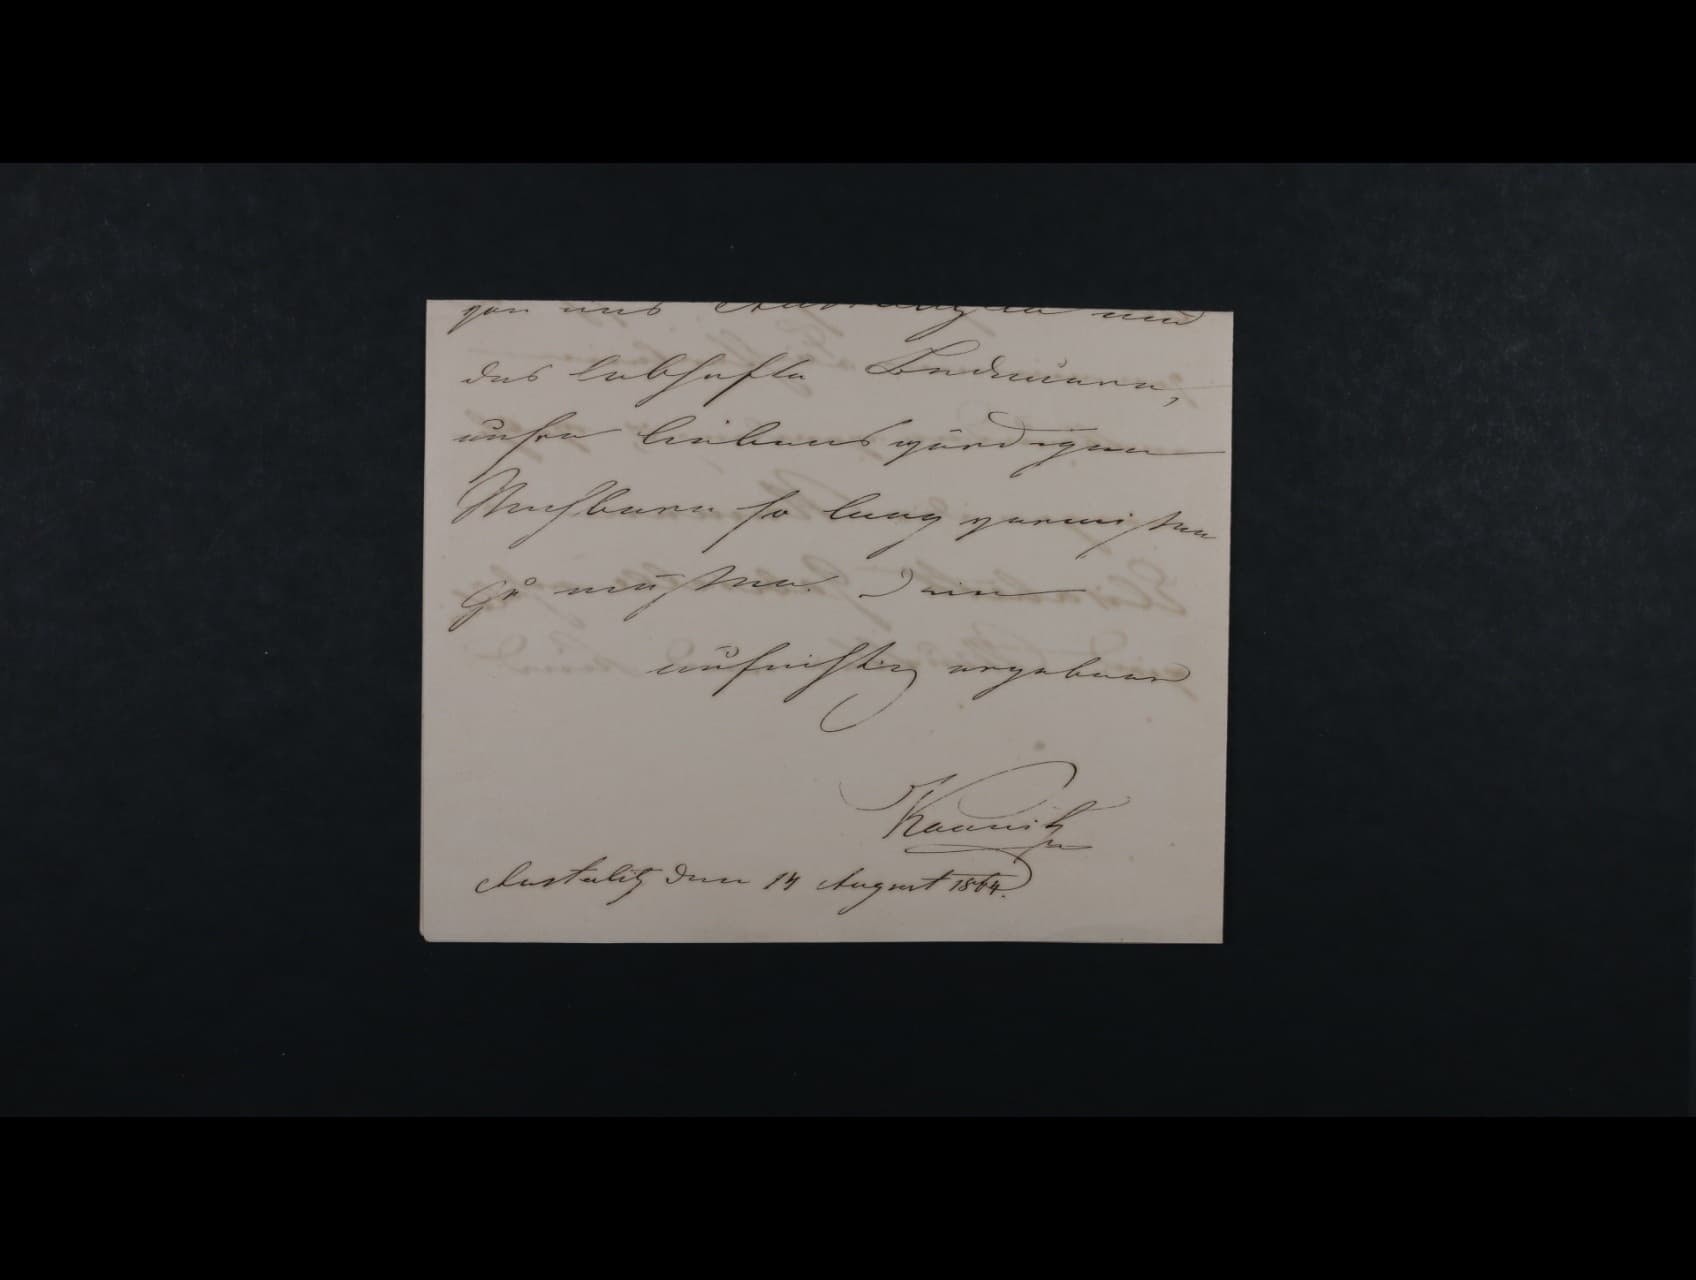 von uns und
das lebhafte Bedauern,
unsre liebenswürdigen
Nachbarn so lang vermissen
zu müssen. Dein
aufrichtig ergebener
Kaunitz
Austerlitz den 14 August 1864.